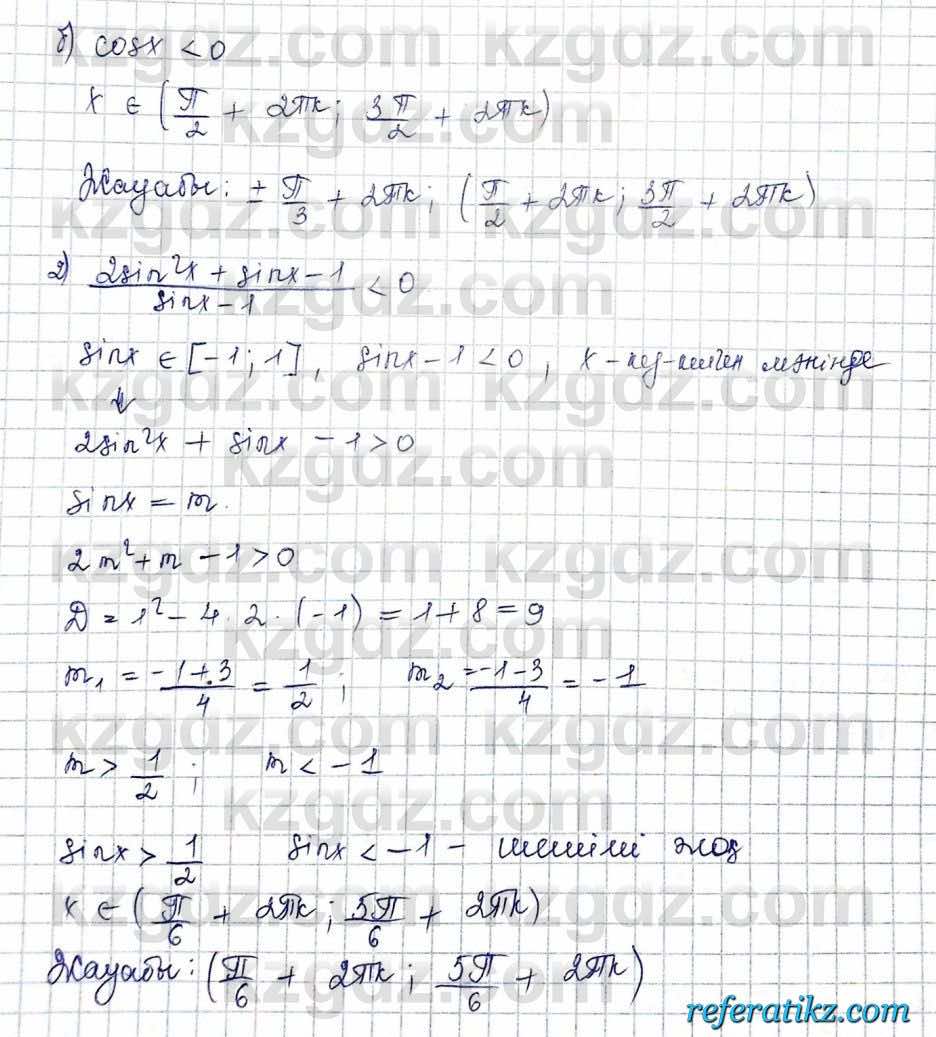 б) cosx < 0
x ∈ (π/2 + 2πk; 3π/2 + 2πk)
Жауабы: ± π/3 + 2πk; (π/2 + 2πk; 3π/2 + 2πk)
2) (2sin²x + sinx - 1)/(sinx - 1) < 0
sinx ∈ [-1; 1], sinx - 1 < 0, x - кез-келген мәнінде
⇓
2sin²x + sinx - 1 > 0
sinx = m.
2m² + m - 1 > 0
D = 1² - 4 · 2 · (-1) = 1 + 8 = 9
m₁ = (-1+3)/4 = 1/2; m₂ = (-1-3)/4 = -1
m > 1/2; m < -1
sinx > 1/2 sinx < -1 - шешімі жоқ
x ∈ (π/6 + 2πk; 5π/6 + 2πk)
Жауабы: (π/6 + 2πk; 5π/6 + 2πk)
referatikz.com
kzgdz.com